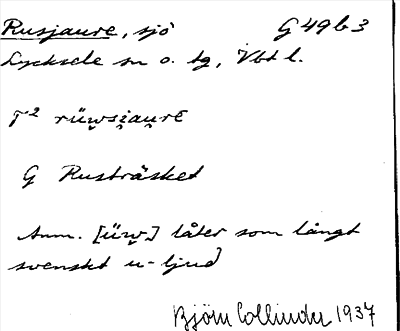 Rusjaure, sjö G 49 b 3
Lycksele sn o. tg, Vbt l.
F² rüw̯si̯au̯rɛ
G Rusträsket
Anm. [üw̯] låter som långt
svenskt u-ljud
Björn Collinder 1937